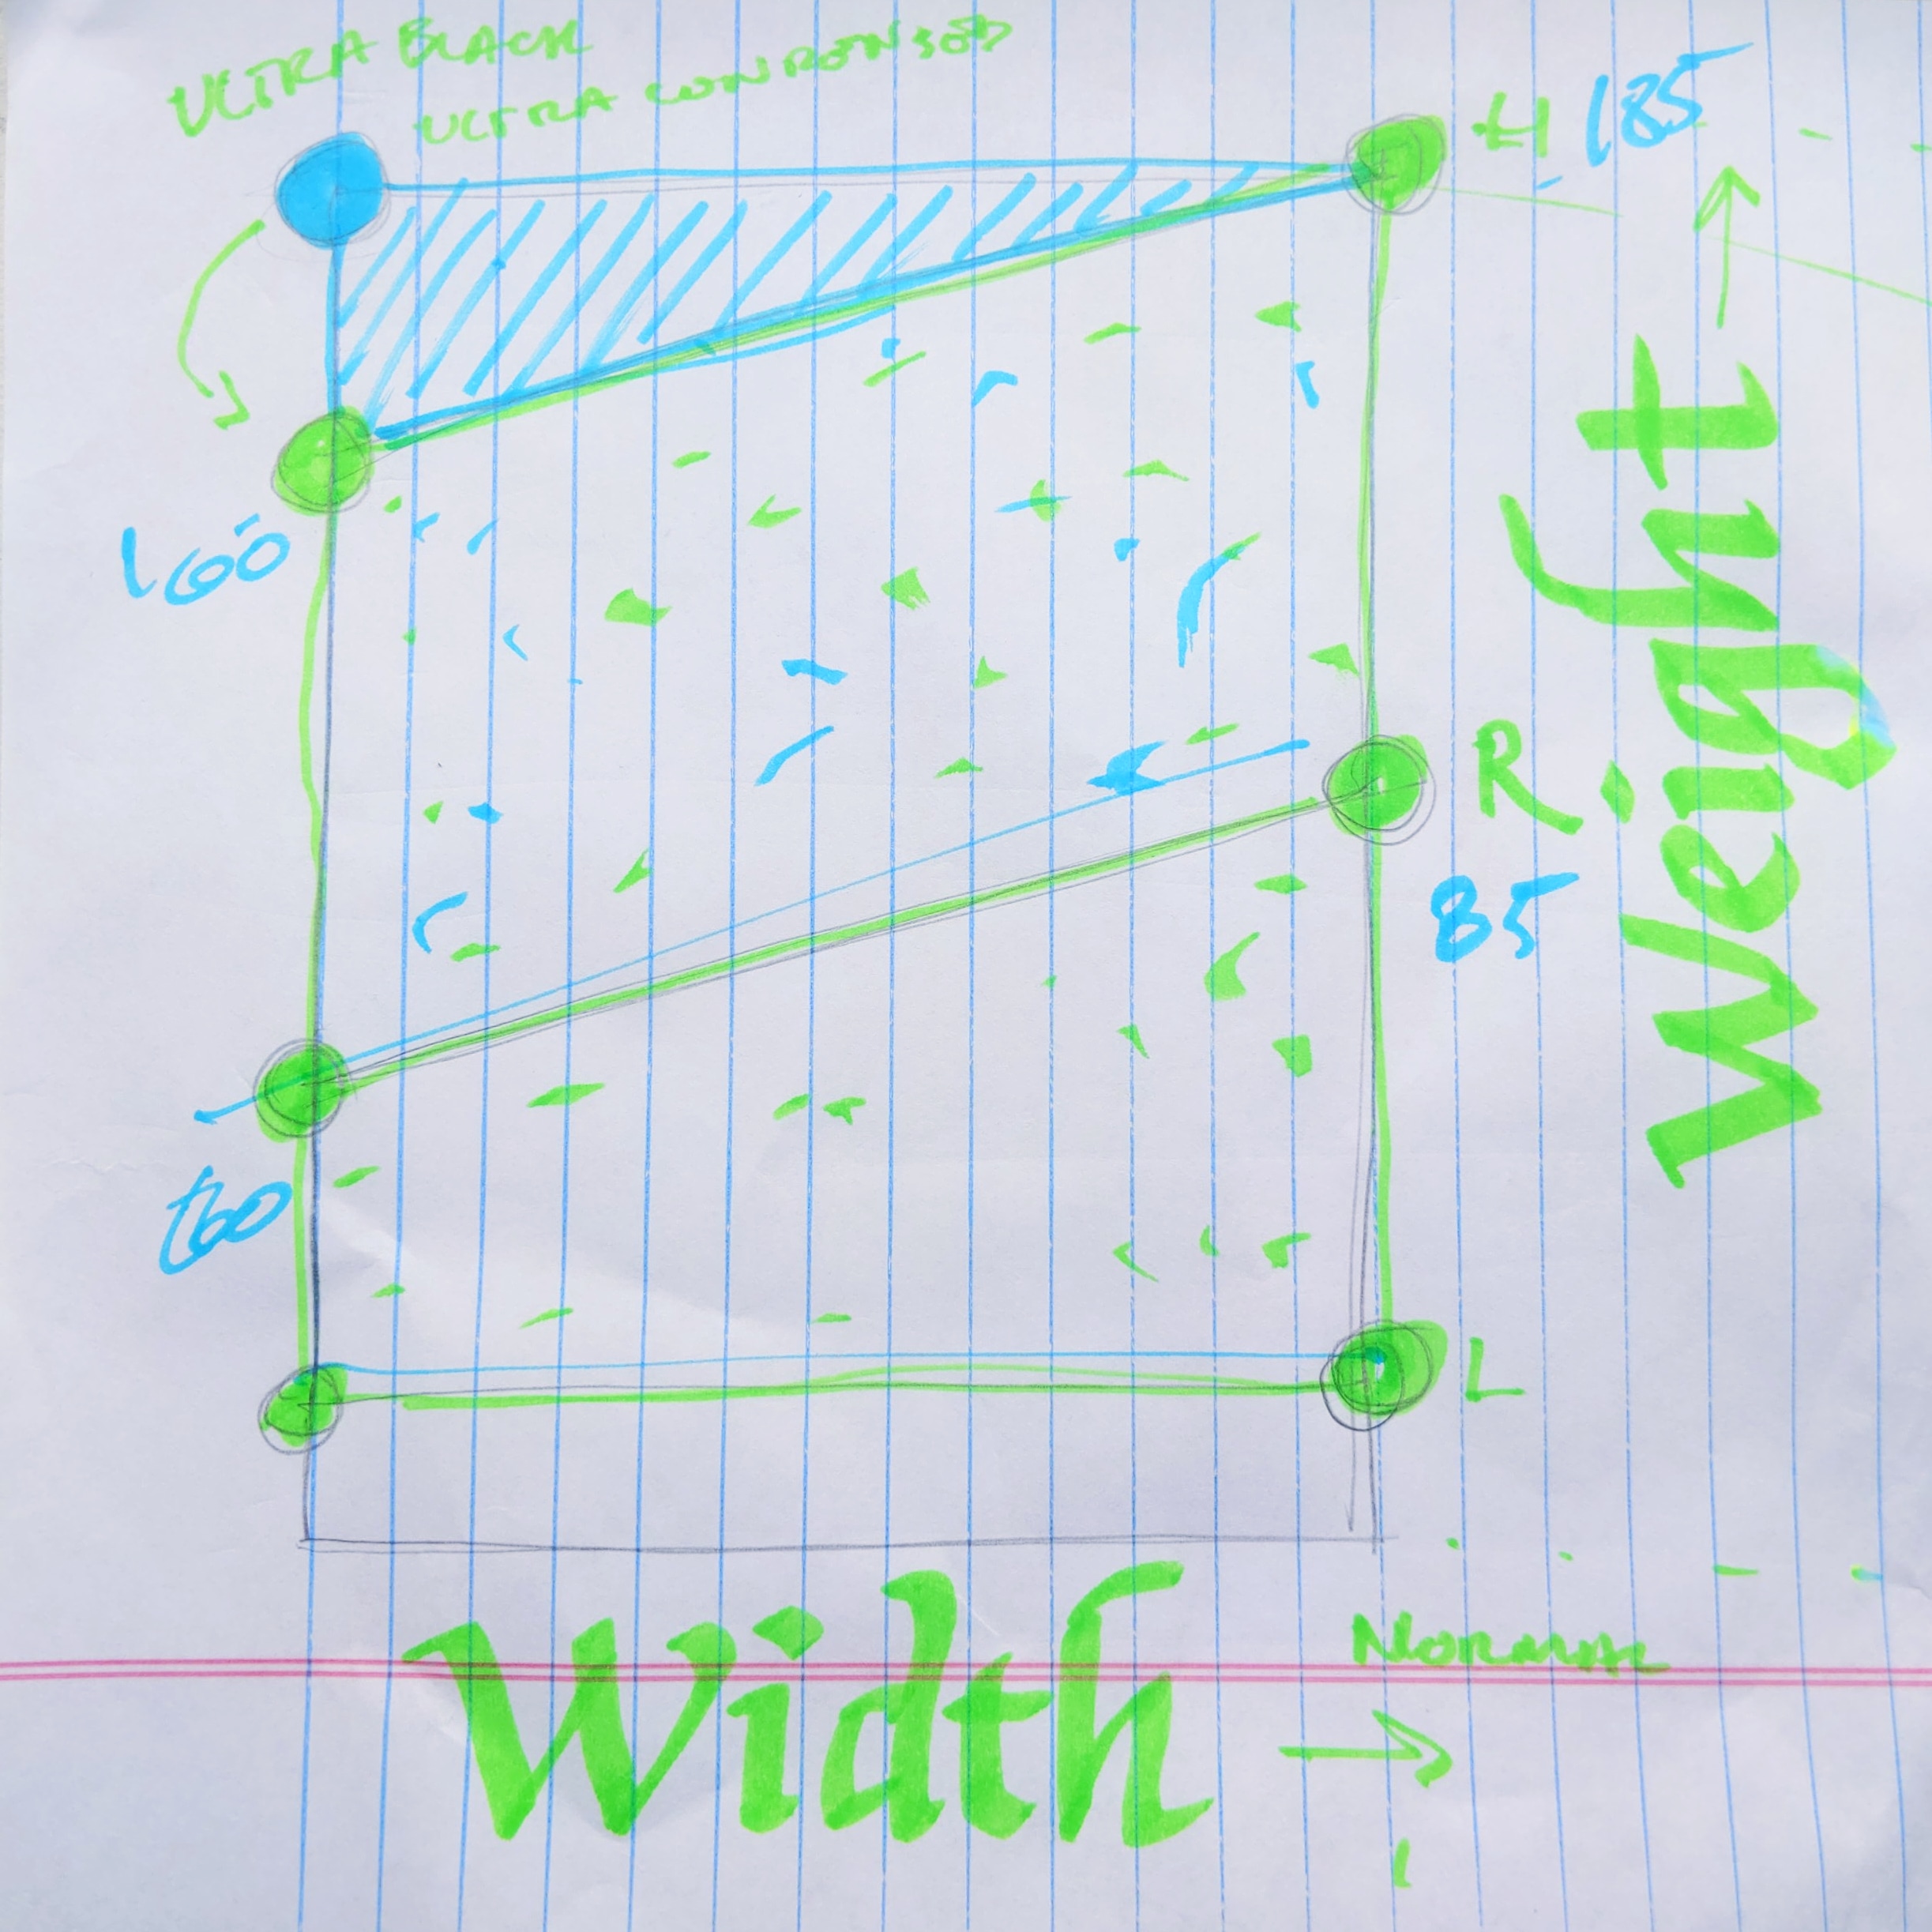 ULTRA BLACK
ULTRA CONDENSED
H 185
160
R
85
60
L
Weight
Width
NORMAL